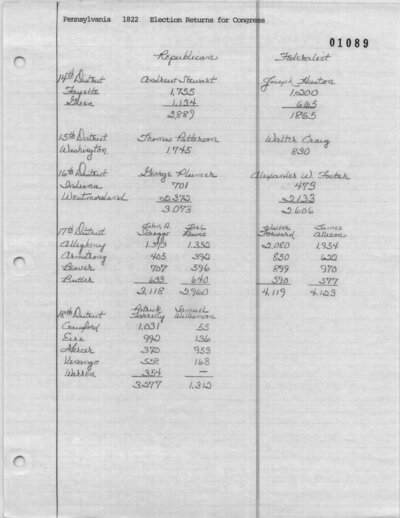 Pennsylvania 1822 Election Returns for Congress
01089
Republican Federalist
14th District Andrew Stewart Joseph Huston
Fayette 1,755 1,200
Green 1,134 665
2,889 1865
15th District Thomas Patterson Walter Craig
Washington 1,745 830
16th District George Plumer Alexander W. Foster
Indiana 701 473
Westmoreland 2,372 2,133
3,073 2,606
17th District John A. Scroggs Joel Lewis Walter Forward James Allison
Allegheny 1,373 1,332 2,080 1,954
Armstrong 405 392 850 622
Beaver 707 596 899 970
Butler 633 640 590 577
3,118 2,960 4,119 4,123
18th District Patrick Farrelly Samuel Williamson
Crawford 1,031 55
Erie 992 136
Mercer 372 953
Venango 528 168
Warren 354 —
3,277 1,312